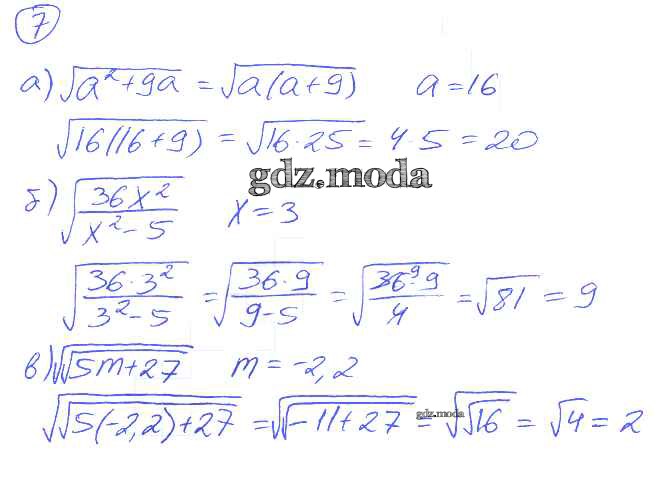 7
а) √(a² + 9a) = √(a(a+9)) a = 16
√(16(16+9)) = √(16·25) = 4·5 = 20
gdz.moda
б) √(36x²/(x² - 5)) x = 3
√(36·3²/(3² - 5)) = √(36·9/(9 - 5)) = √(36⁹·9/4) = √81 = 9
в) √√(5m+27) m = -2,2
√√(5(-2,2)+27) = √√(-11+27) = √√16 = √4 = 2
gdz.moda